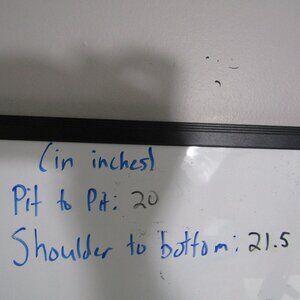 (in inches)
Pit to Pit: 20
Shoulder to bottom: 21.5